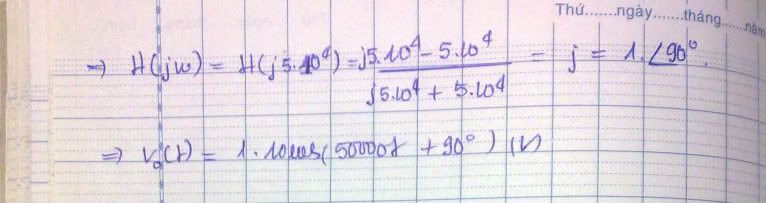 Thứ.......ngày.......tháng.......năm
⇒ H(jω) = H(j5.10⁴) = (j5.10⁴ - 5.10⁴) / (j5.10⁴ + 5.10⁴) = j = 1.∠90°.
⇒ V₀(t) = 1.10cos(50000t + 90°) (V)